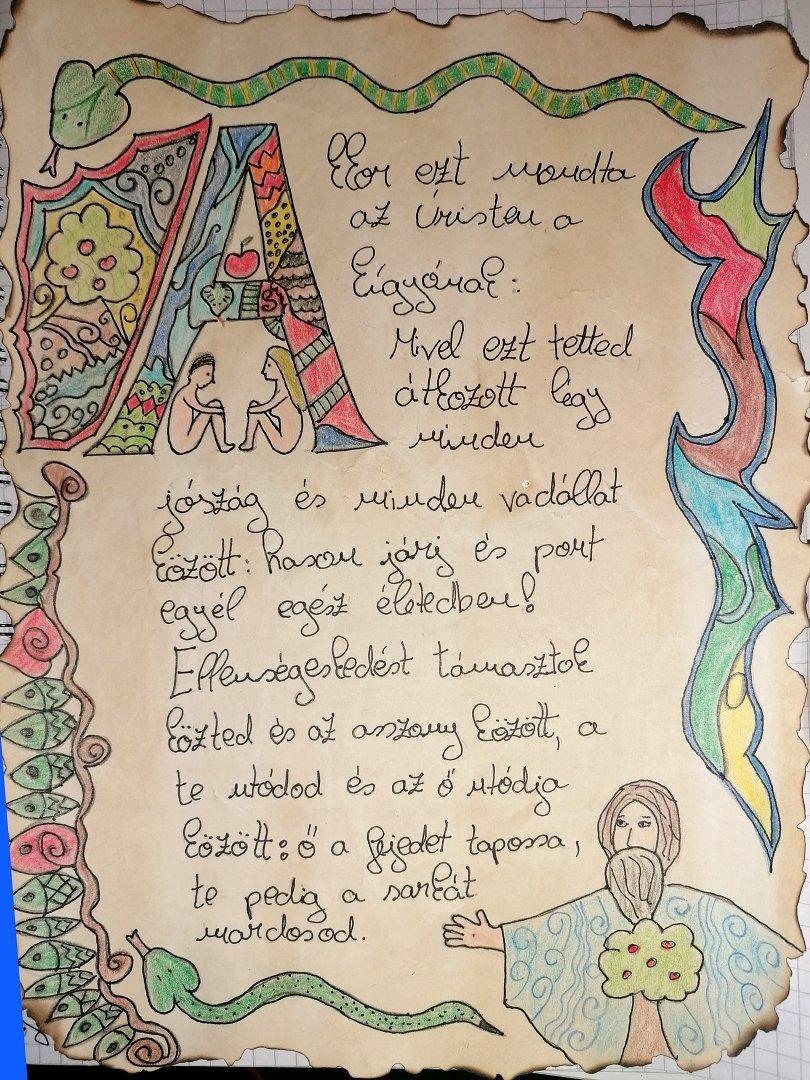 A
kkor ezt mondta
az Úristen a
kígyónak:
Mivel ezt tetted
átkozott légy
minden
jószág és minden vadállat
között: hason járj és port
egyél egész életedben!
Ellenségeskedést támasztok
közted és az asszony között, a
te utódod és az ő utódja
között: ő a fejedet tapossa,
te pedig a sarkát
mardosod.